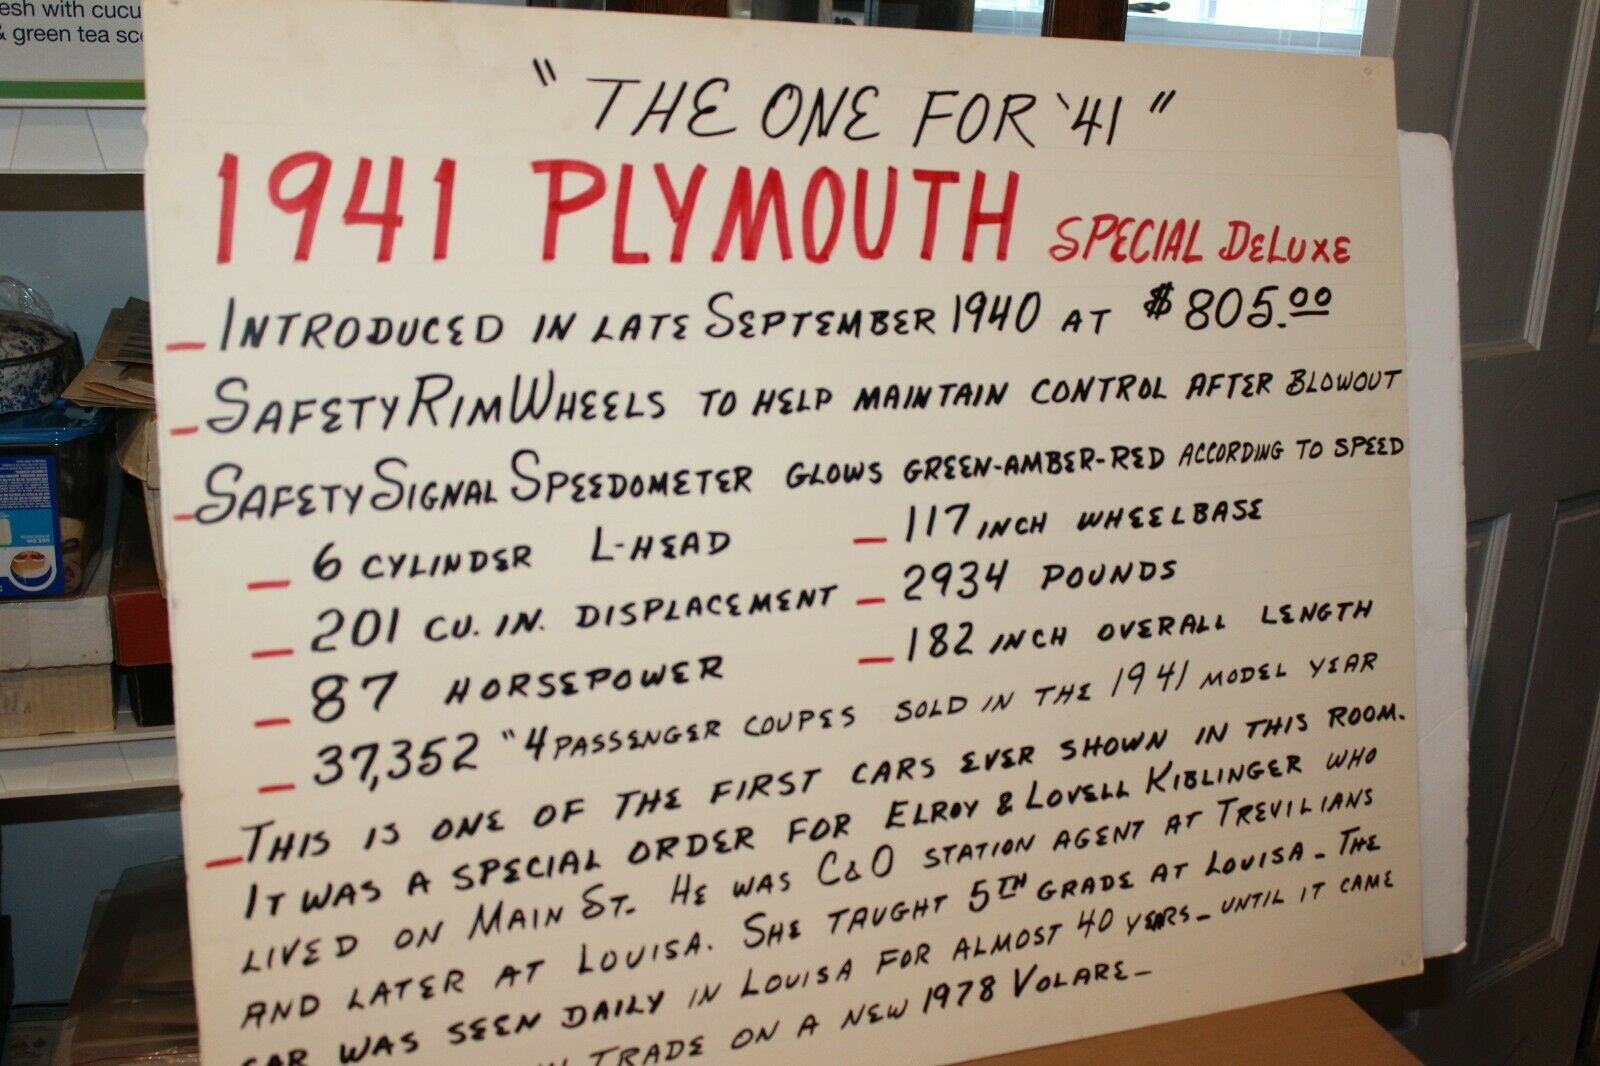 esh with cucu
& green tea sc
" THE ONE FOR '41 "
1941 PLYMOUTH SPECIAL DELUXE
— INTRODUCED IN LATE SEPTEMBER 1940 AT $805.00
— SAFETY RIM WHEELS TO HELP MAINTAIN CONTROL AFTER BLOWOUT
— SAFETY SIGNAL SPEEDOMETER GLOWS GREEN-AMBER-RED ACCORDING TO SPEED
— 6 CYLINDER L-HEAD
— 201 CU. IN. DISPLACEMENT
— 87 HORSEPOWER
— 117 INCH WHEELBASE
— 2934 POUNDS
— 182 INCH OVERALL LENGTH
— 37,352 "4 PASSENGER COUPES SOLD IN THE 1941 MODEL YEAR
— THIS IS ONE OF THE FIRST CARS EVER SHOWN IN THIS ROOM.
IT WAS A SPECIAL ORDER FOR ELROY & LOVELL KIBLINGER WHO
LIVED ON MAIN ST. HE WAS C&O STATION AGENT AT TREVILIANS
AND LATER AT LOUISA. SHE TAUGHT 5TH GRADE AT LOUISA – THE
CAR WAS SEEN DAILY IN LOUISA FOR ALMOST 40 YEARS – UNTIL IT CAME
IN TRADE ON A NEW 1978 VOLARE –